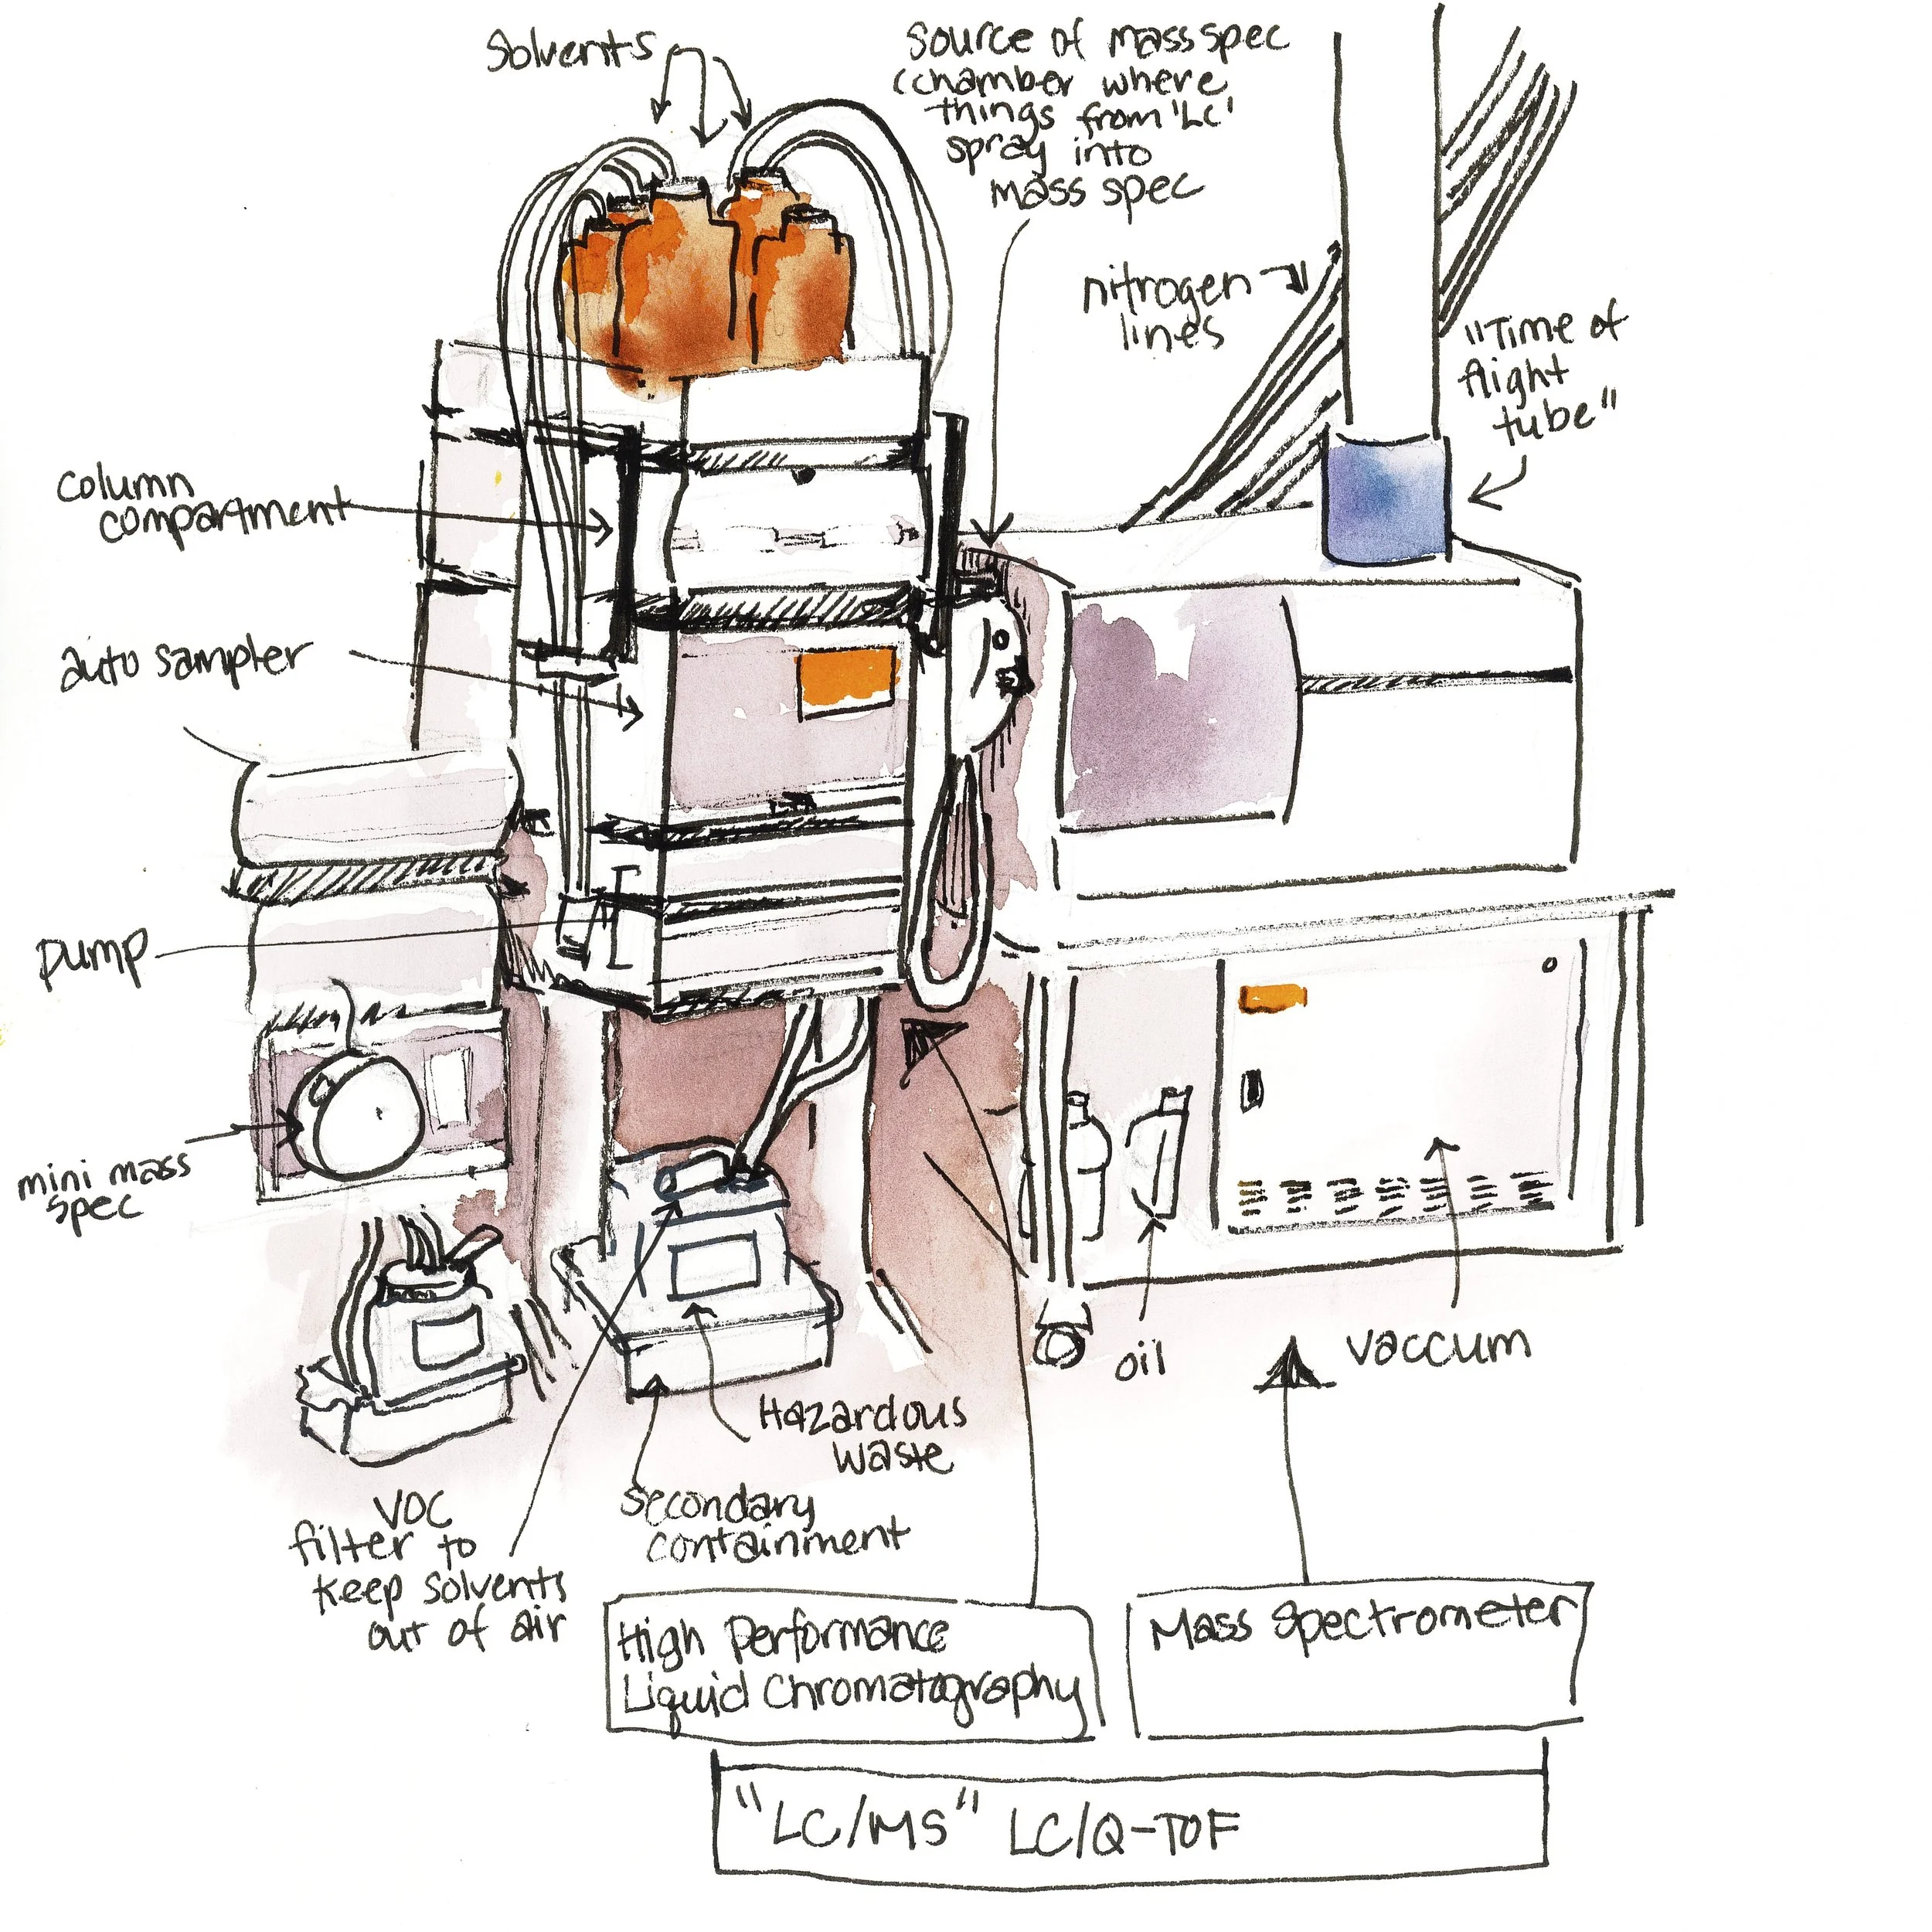 Solvents
Source of mass spec
(chamber where
things from 'LC'
spray into
mass spec
nitrogen
lines
"Time of
flight
tube"
column
compartment
auto sampler
pump
mini mass
spec
oil
vaccum
Hazardous
waste
Secondary
containment
VOC
filter to
keep solvents
out of air
High Performance
Liquid Chromatography
Mass Spectrometer
"LC/MS" LC/Q-TOF